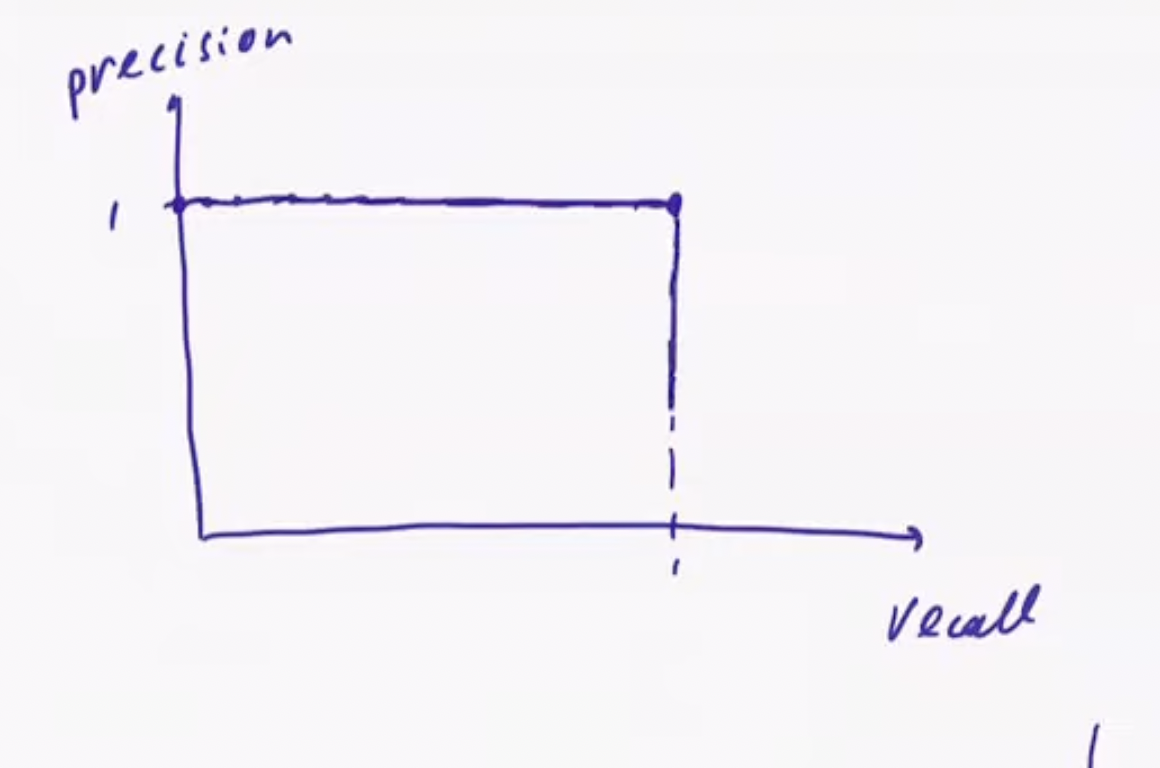 precision
1
1
recall